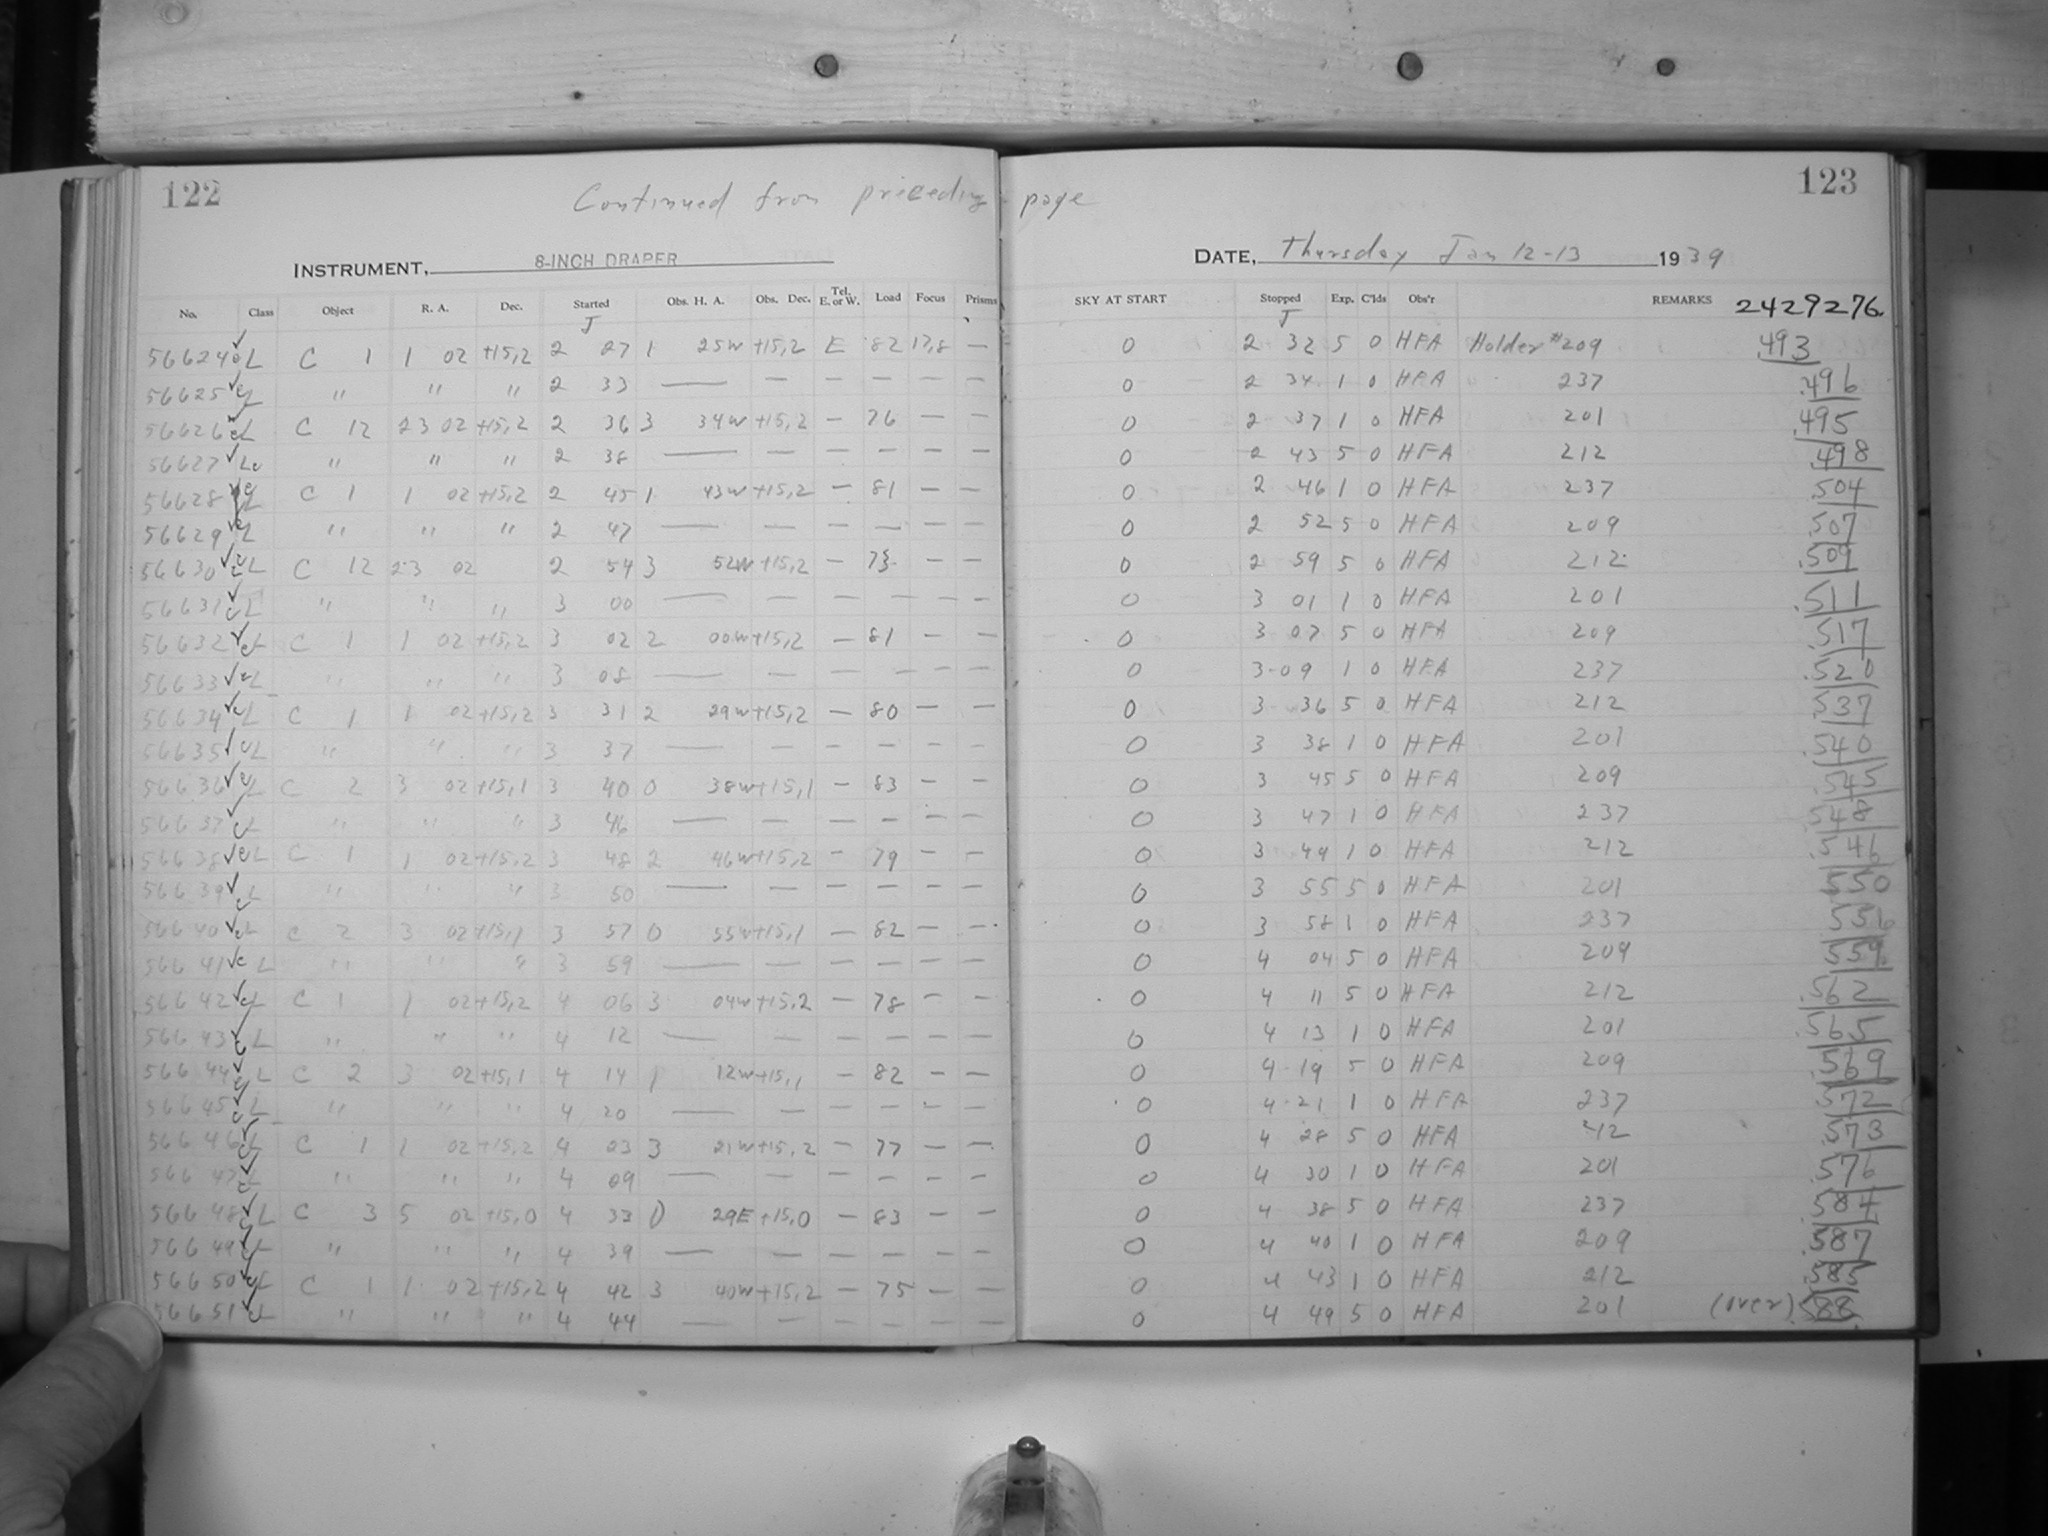 122 Continued from preceding page 123
INSTRUMENT, 8-INCH DRAPER DATE, Thursday Jan 12-13 1939
No. Class Object R. A. Dec. Started Obs. H. A. Obs. Dec. Tel. E. or W. Load Focus Prisms SKY AT START Stopped Exp. C'lds Obs'r REMARKS 2429276.
J J
56624 L C 1 1 02 +15,2 2 27 1 25W +15,2 E 82 17,8 — 0 2 32 5 0 HFA Holder #209 .493
56625 L " " " 2 33 — — — — — — 0 2 34 1 0 HFA 237 .496
56626 L C 12 23 02 +15,2 2 36 3 34W +15,2 — 76 — — 0 2 37 1 0 HFA 201 .495
56627 L " " " 2 38 — — — — — — 0 2 43 5 0 HFA 212 .498
56628 L C 1 1 02 +15,2 2 45 1 43W +15,2 — 81 — — 0 2 46 1 0 HFA 237 .504
56629 L " " " 2 47 — — — — — — 0 2 52 5 0 HFA 209 .507
56630 L C 12 23 02 2 54 3 52W +15,2 — — — 0 2 59 5 0 HFA 212 .509
56631 L " " " 3 00 — — — — — — 0 3 01 1 0 HFA 201 .511
56632 L C 1 1 02 +15,2 3 02 2 00W +15,2 — 81 — — 0 3 07 5 0 HFA 209 .517
56633 L " " " 3 08 — — — — — — 0 3 09 1 0 HFA 237 .520
56634 L C 1 1 02 +15,2 3 31 2 29W +15,2 — 80 — — 0 3 36 5 0 HFA 212 .537
56635 L " " " 3 37 — — — — — — 0 3 38 1 0 HFA 201 .540
56636 L C 2 3 02 +15,1 3 40 0 38W +15,1 — 83 — — 0 3 45 5 0 HFA 209 .545
56637 L " " " 3 46 — — — — — — 0 3 47 1 0 HFA 237 .548
56638 L C 1 1 02 +15,2 3 48 2 46W +15,2 — 79 — — 0 3 49 1 0 HFA 212 .546
56639 L " " " 3 50 — — — — — — 0 3 55 5 0 HFA 201 .550
56640 L C 2 3 02 +15,1 3 57 0 55W +15,1 — 82 — — 0 3 58 1 0 HFA 237 .556
56641 L " " " 3 59 — — — — — — 0 4 04 5 0 HFA 209 .559
56642 L C 1 1 02 +15,2 4 06 3 04W +15,2 — 78 — — 0 4 11 5 0 HFA 212 .562
56643 L " " " 4 12 — — — — — — 0 4 13 1 0 HFA 201 .565
56644 L C 2 3 02 +15,1 4 14 1 12W +15,1 — 82 — — 0 4 19 5 0 HFA 209 .569
56645 L " " " 4 20 — — — — — — 0 4 21 1 0 HFA 237 .572
56646 L C 1 1 02 +15,2 4 23 3 21W +15,2 — 77 — — 0 4 28 5 0 HFA .573
56647 L " " " 4 09 — — — — — — 0 4 30 1 0 HFA 201 .576
56648 L C 3 5 02 +15,0 4 33 0 29E +15,0 — 83 — — 0 4 38 5 0 HFA 237 .584
56649 L " " " 4 39 — — — — — — 0 4 40 1 0 HFA 209 .587
56650 L C 1 1 02 +15,2 4 42 3 40W +15,2 — 75 — — 0 4 43 1 0 HFA 212 .585
56651 L " " " 4 44 — — — — — — 0 4 49 5 0 HFA 201 (over) .588